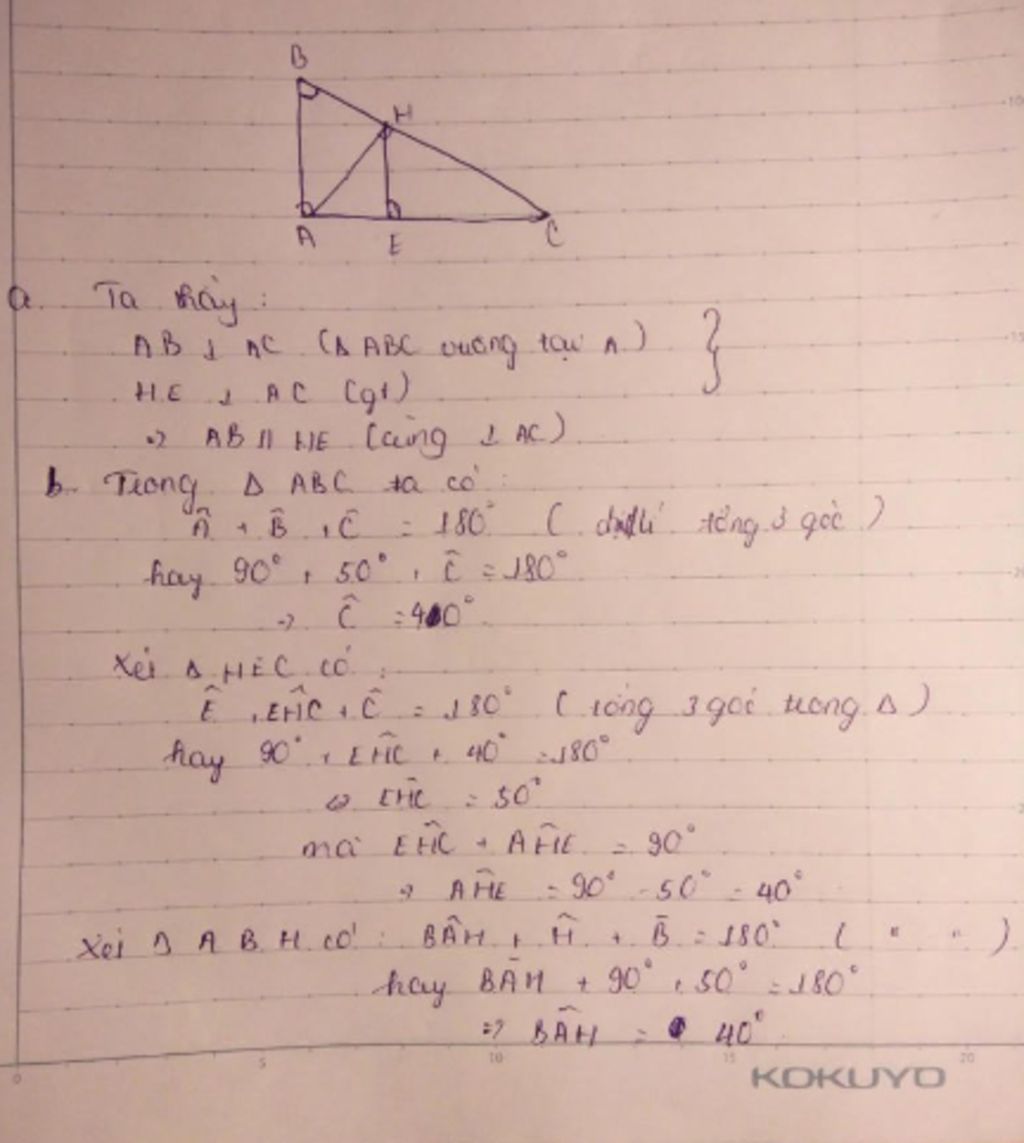 B
H
A
E
C
a. Ta thấy:
AB ⊥ AC (Δ ABC vuông tại A)
HE ⊥ AC (gt)
=> AB // HE (cùng ⊥ AC)
b. Trong Δ ABC ta có:
Â + B̂ + Ĉ = 180° ( định lí tổng 3 góc )
hay 90° + 50° + Ĉ = 180°
=> Ĉ = 40°
Xét Δ HEC có:
Ê + EĤC + Ĉ = 180° ( tổng 3 góc trong Δ )
hay 90° + EĤC + 40° = 180°
<=> EĤC = 50°
mà EĤC + AĤE = 90°
=> AĤE = 90° - 50° = 40°
Xét Δ ABH có: BÂH + Ĥ + B̂ = 180° ( " " )
hay BÂH + 90° + 50° = 180°
=> BÂH = 40°
0 5 10 15 20
KOKUYO